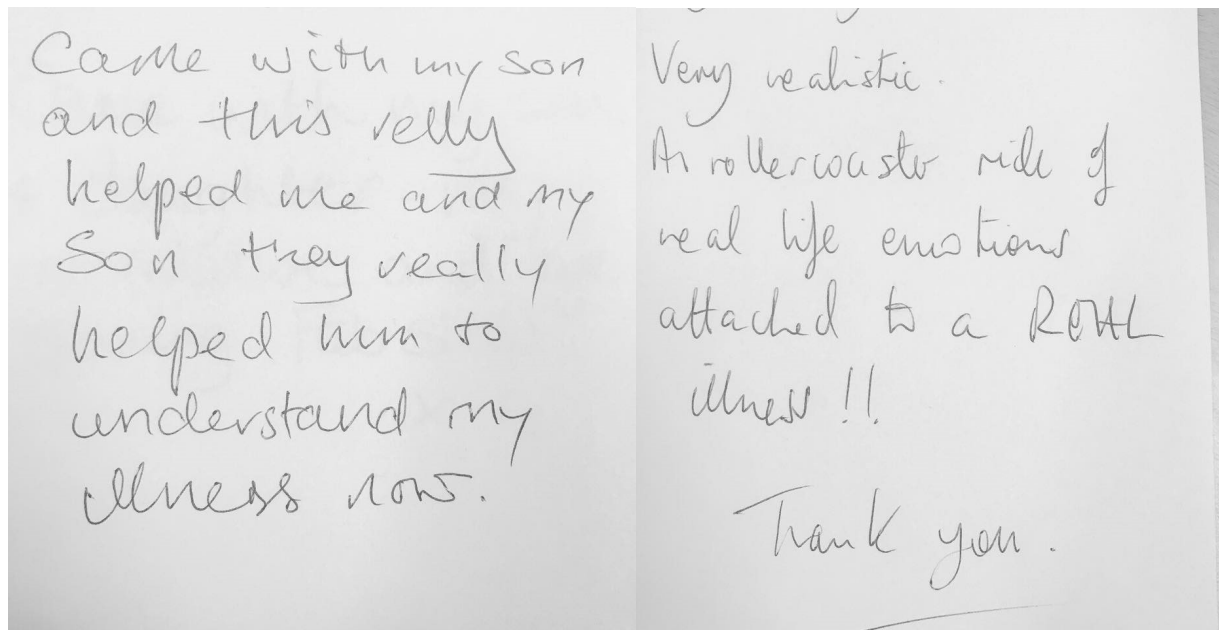 Came with my son
and this relly
helped me and my
Son they really
helped him to
understand my
illness now.
Very realistic.
A rollercoaster ride of
real life emotions
attached to a REAL
illness !!
Thank you.